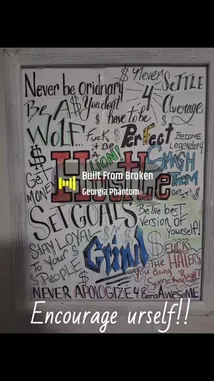 Never be Oridnary
$ Never $ SETTLE
BE A
You don't
have to be
4
Average
WOLF...
Fuck
it
PERfEct
BECOME
LEGENDARY
Hustle
SMASH
THEM
GET
MONEY
Built From Broken
Georgia Phantom
SET GOALS
Be the best
VERSION OF
Yourself!
STAY LOYAL
To Your
PEOPLE
Grind
FUCK
THE HATERS
you doing Right
NEVER APOLOGIZE 4 BeingAwesoME
Encourage urself!!